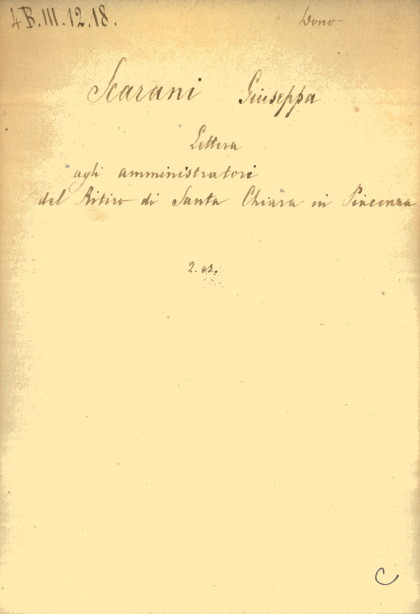 4 B.III.12.18.
Dono
Scarani Giuseppa
Lettera
agli amministratori
del Ritiro di Santa Chiara in Piacenza
2. es.
C